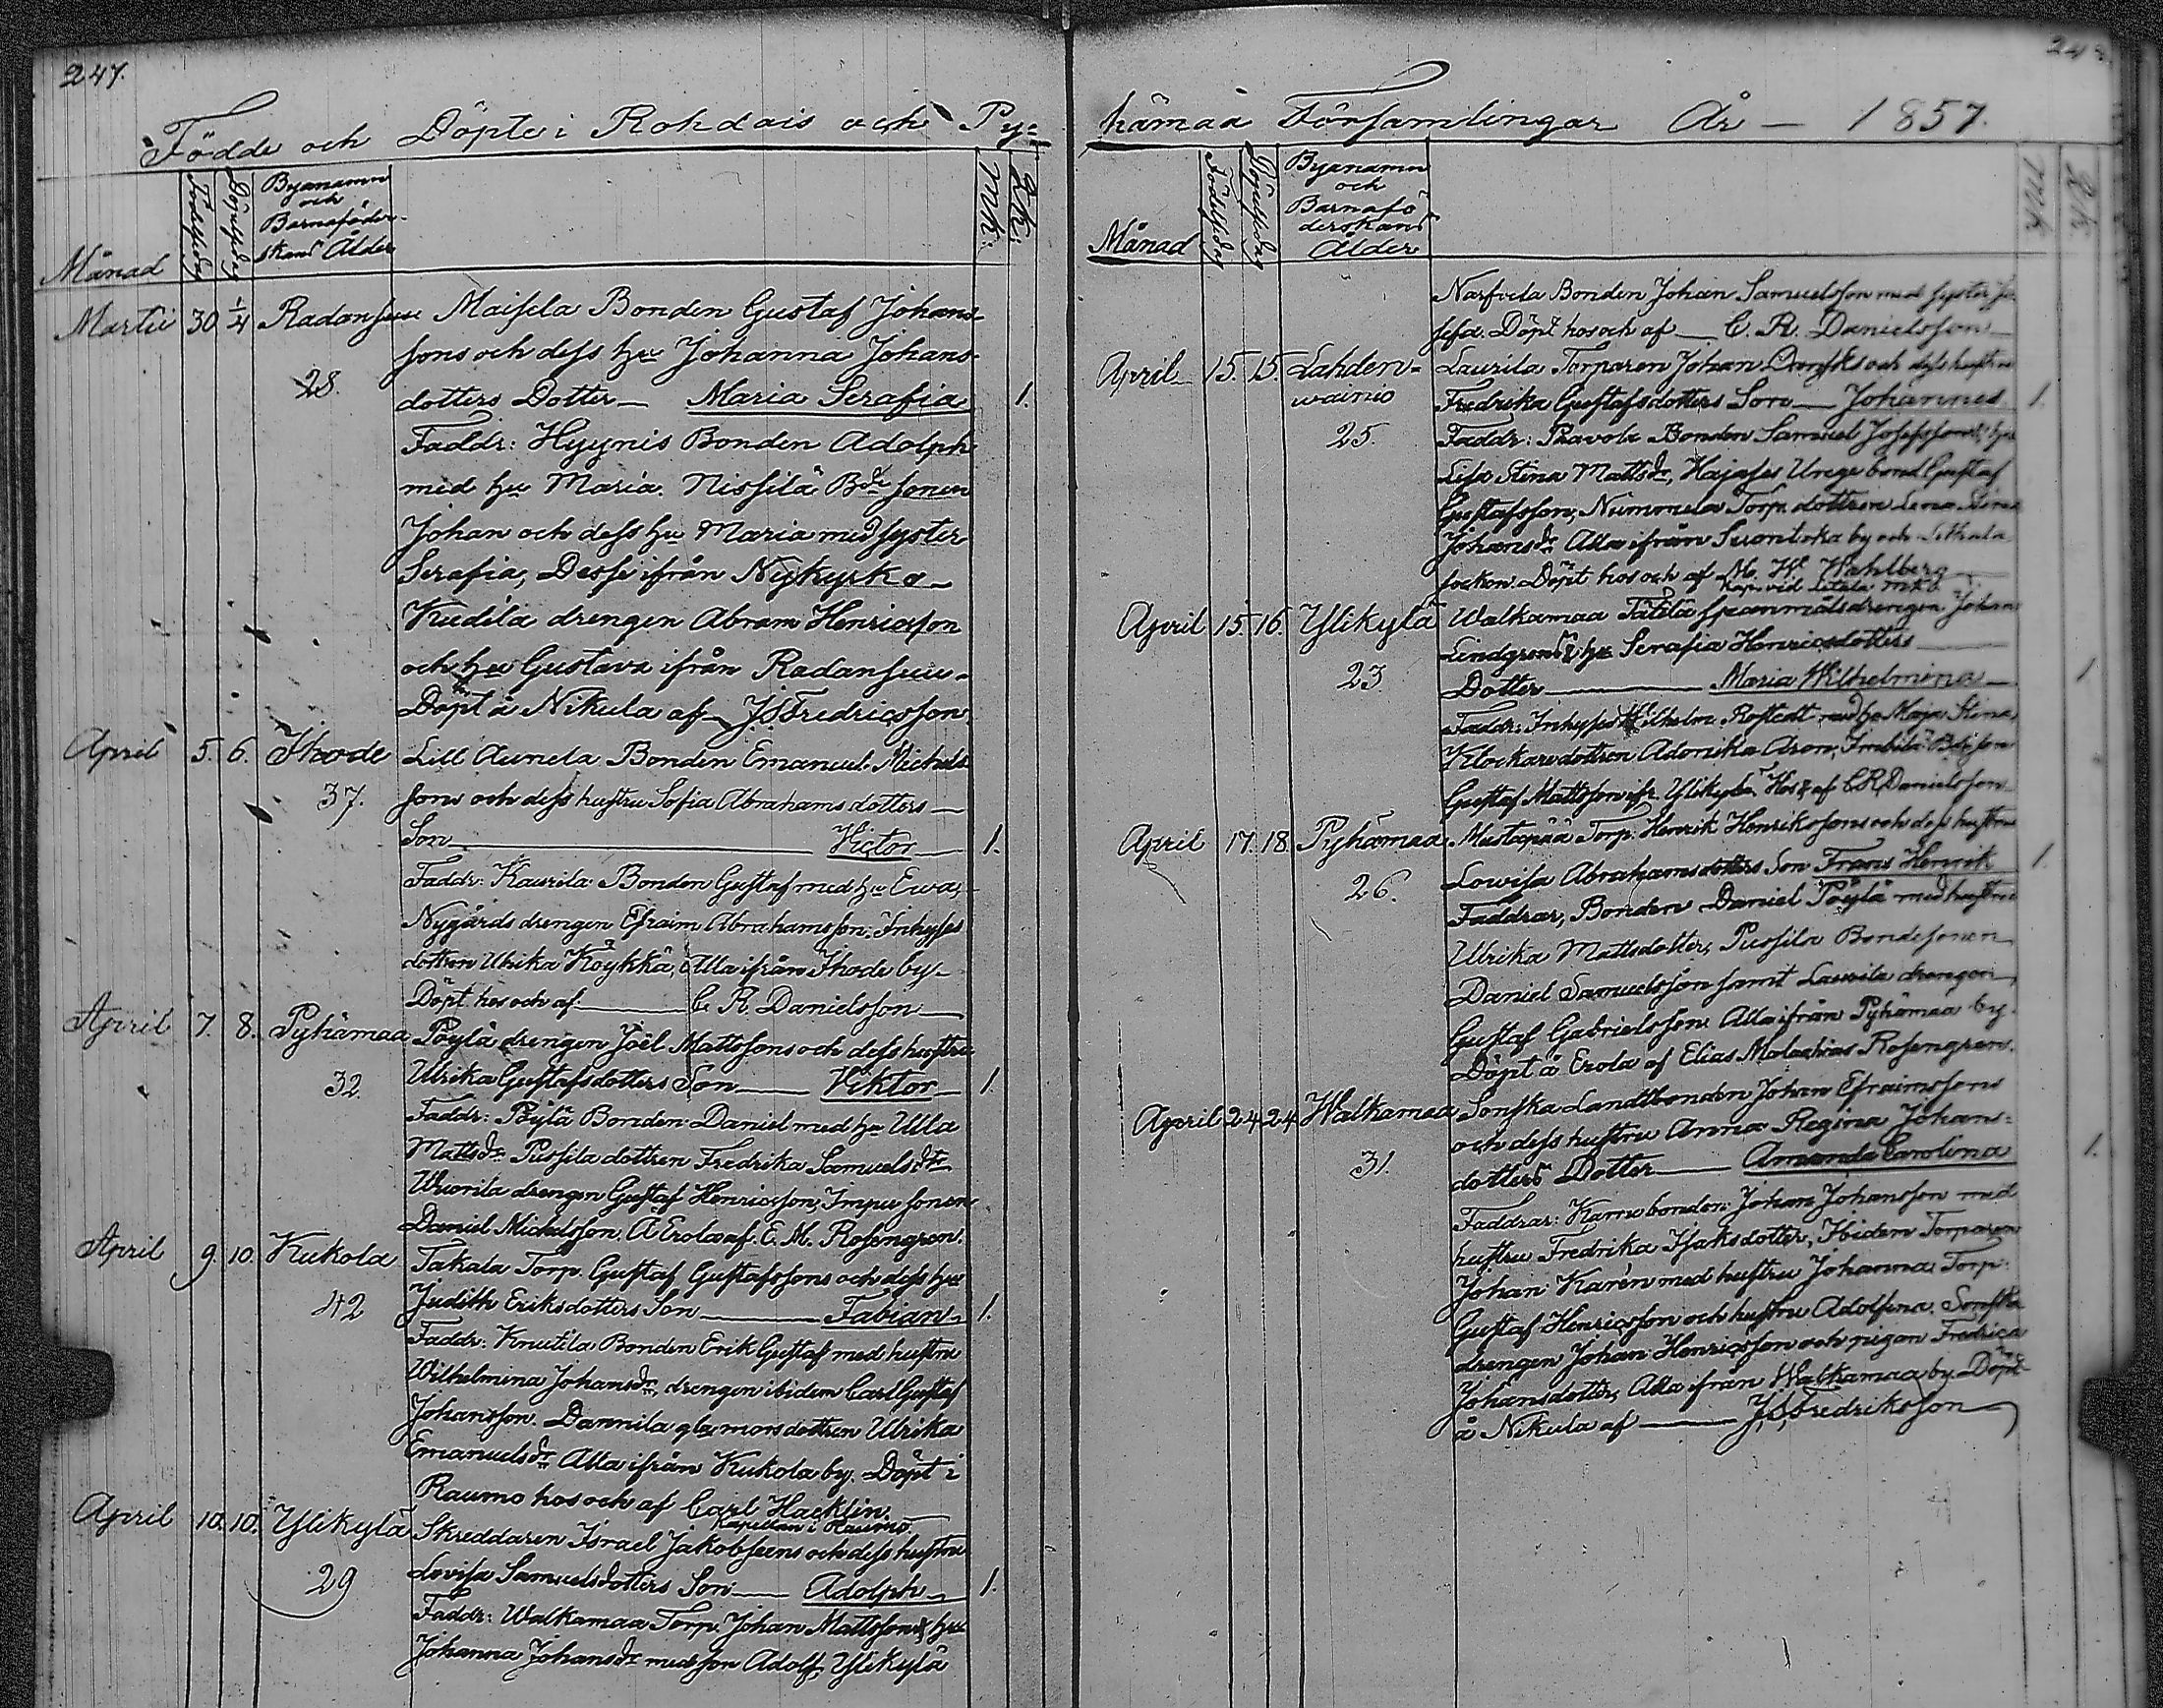 247.
Födde och Döpte i Rohdais och Py-
Månad
Födelsedag
Döpelsedag
Byanamn
och
Barnaföder-
skans Ålder
Mk:
Qk:
Martii 30 1/4 Radansuu Maisela Bonden Gustaf Johans-
sons och dess hu Johanna Johans-
28.
dotters Dotter — Maria Serafia 1.
Faddr: Hyynis Bonden Adolph
med hu Maria. Nissilä Bde sonen
Johan och dess hu Maria med syster
Serafia, Desse ifrån Nykyrko —
Kudila drengen Abram Henricsson
och hu Gustava ifrån Radansuu.
Döpt å Nikula af J.S. Fredricsson.
April 5. 6. Ihode Lill Aunela Bonden Emanuel Michels
37. sons och dess hustru Sofia Abrahamsdotters —
Son — Victor — 1.
Faddr: Kaurila Bonden Gustaf med hu Ewa,
Nygårds drengen Efraim Abrahamsson, Inhyses
dottren Ulrika Köykkä, Alla ifrån Ihode by —
Döpt hos och af — C. R. Danielsson —
April 7. 8. Pyhämaa Pöylä drengen Joël Mattssons och dess hustru
32. Ulrika Gustafsdotters Son — Viktor — 1.
Faddr: Pöylä Bonden Daniel med hu Ulla
Mattsdr Pussila dottren Fredrika Samuelsdr
Wuorila drengen Gustaf Henricsson, Impu sonen
Daniel Michelsson. Å Erola af E. M. Rosengren.
April 9. 10. Kukola Takala Torp. Gustaf Gustafssons och dess hu
42 Judith Eriksdotters Son — Fabian — 1.
Faddr: Knutila Bonden Erik Gustaf med hustru
Wilhelmina Johansdr, drengen ibidem Carl Gustaf
Johansson. Dannila dottren Ulrika
Emanuelsdr Alla ifrån Kukola by. Döpt i
Raumo hos och af Carl Hacklin.
Kapellan i Raumo.
April 10. 10. Ylikylä Skreddaren Israel Jakobssons och dess hustru
29 Lovisa Samuelsdotters Son — Adolph — 1.
Faddr: Walkamaa Torp. Johan Mattsson & hu
Johanna Johansdr med son Adolf, Ylikylä
hämaa Församlingar År — 1857.
Månad
Födelsedag
Döpelsedag
Byanamn
och
Barnafö
derskans
Ålder
Mk
Qk
Narfvila Bonden Johan Samuelsson med syster Jo-
sefa. Döpt hos och af — C. R. Danielsson —
April 15. 15. Lahden- Laurila Torparen Johan och dess hustru
wainio Fredrika Gustafsdotters Son — Johannes 1.
25. Faddr: Paavola Bonden Samuel Josefsson & hu
Lisa Stina Mattsdr, Unge bond Gustaf
Gustafsson, Torp. dottren Lena Stina
Johansdr Alla ifrån by och Letala
socken. Döpt hos och af M. W. Wahlberg
Kap. vid Letala
April 15. 16. Ylikylä Walkamaa Tätilä spanmålsdrengen Johan
Lindgrens & hu Serafia Henricsdotters —
23. Dotter — Maria Wilhelmina — 1
Faddr: Inhyses Wilhelm Rostedt med hu Maja Stina,
Klockaredottren Adonika Aron, Bde son
Gustaf Mattsson ifr. Ylikylä. Hos & af C R Danielsson
April 17. 18. Pyhämaa Mustapää Torp. Henrik Henrikssons och dess hustru
26. Lowisa Abrahamsdotters Son Frans Henrik 1.
Faddrar, Bonden Daniel Pöylä med hustru
Ulrika Mattsdotter, Pussila Bondesonen
Daniel Samuelsson samt Laurila drengen
Gustaf Gabrielsson. Alla ifrån Pyhämaa by.
Döpt å Erola af Elias Malachias Rosengren.
April 24. 24. Walkamaa Sonska Landtbonden Johan Efraimssons
och dess hustru Anna Regina Johan-
31. dotters Dotter — Amanda Carolina 1.
Faddrar: Karnebonden Johan Johansson med
hustru Fredrika Isaksdotter, Ibidem Torparen
Johan Karén med hustru Johanna Torp:
Gustaf Henricsson och hustru Adolfina, Sonska
drengen Johan Henricsson och pigan Fredrica
Johansdotter, Alla ifrån Walkamaa by. Döpt
å Nikula af — J.S. Fredriksson